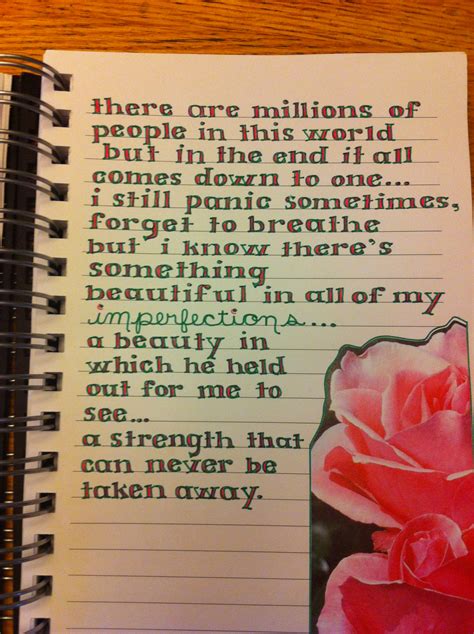 there are millions of
people in this world
but in the end it all
comes down to one...
i still panic sometimes,
forget to breathe
but i know there's
something
beautiful in all of my
imperfections...
a beauty in
which he held
out for me to
see...
a strength that
can never be
taken away.